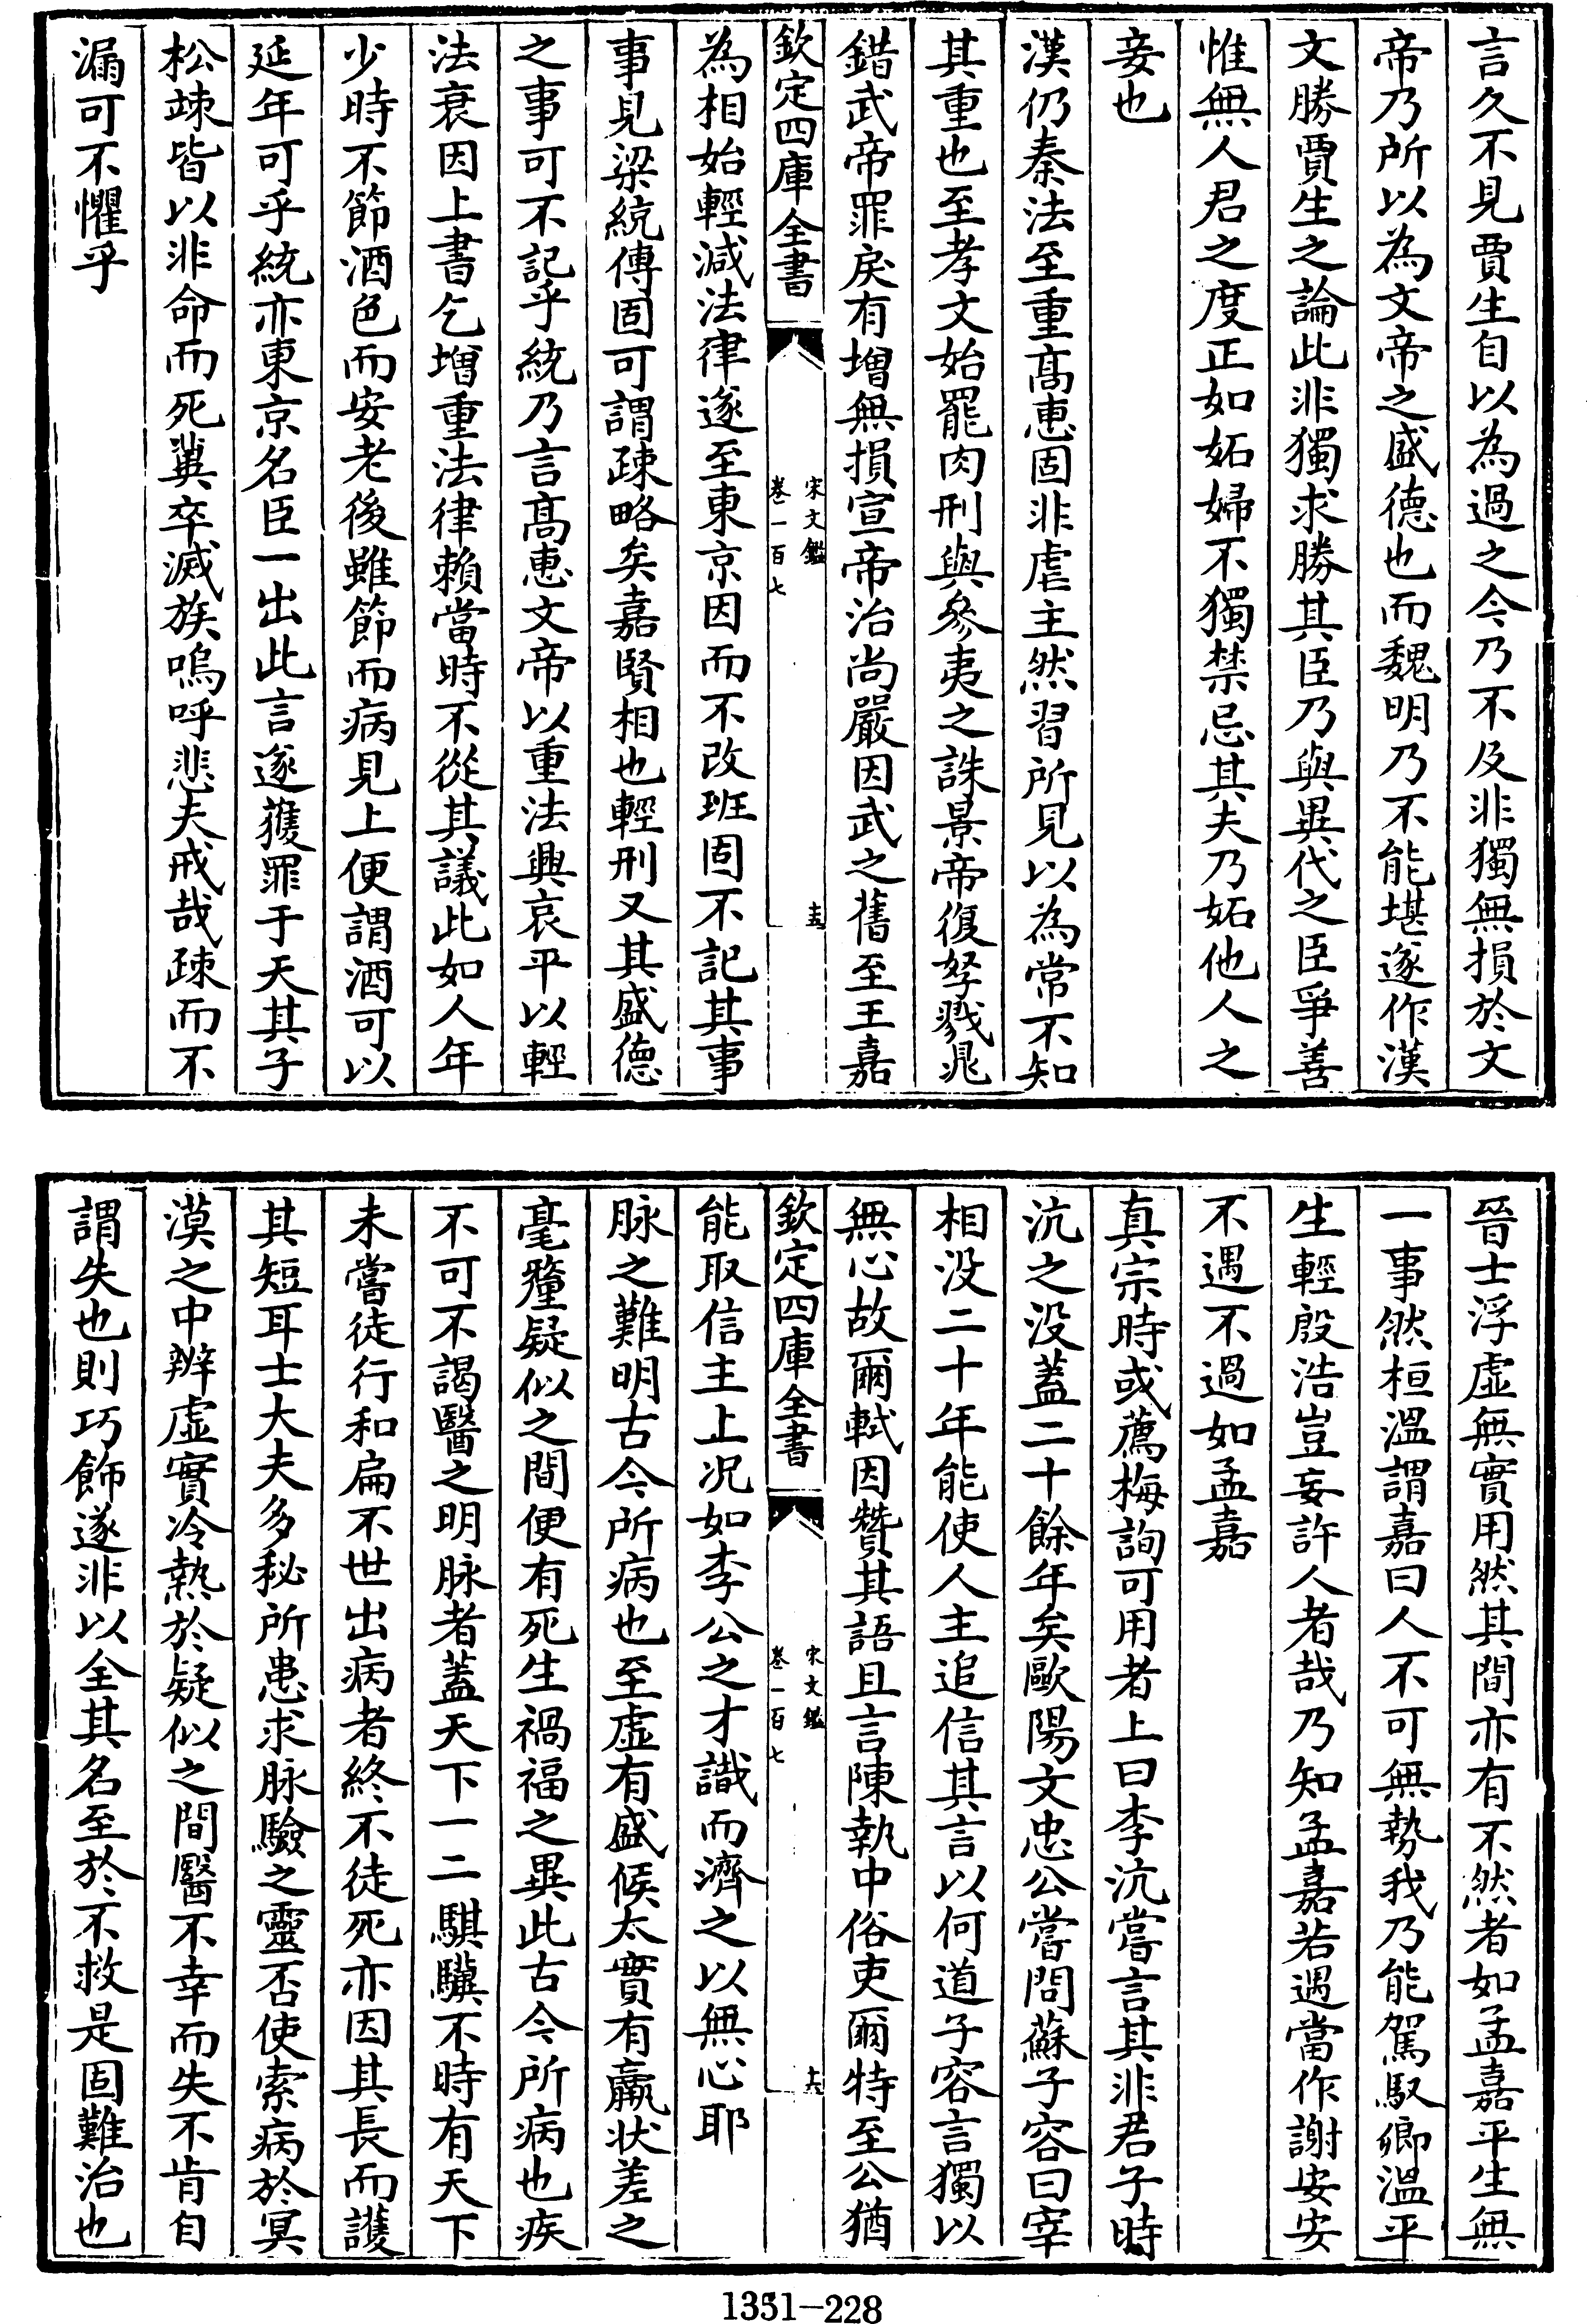 言久不見賈生自以為過之今乃不及非獨無損於文
帝乃所以為文帝之盛德也而魏明乃不能堪遂作漢
文勝賈生之論此非獨求勝其臣乃與異代之臣爭善
惟無人君之度正如妬婦不獨禁忌其夫乃妬他人之
妾也
漢仍秦法至重髙惠固非虐主然習所見以為常不知
其重也至孝文始罷肉刑與參夷之誅景帝復孥戮鼂
錯武帝罪戾有增無損宣帝治尚嚴因武之舊至王嘉
欽定四庫全書
宋文鑑
卷一百七
十五
為相始輕減法律遂至東京因而不改班固不記其事
事見梁統傳固可謂疎略矣嘉賢相也輕刑又其盛德
之事可不記乎統乃言髙惠文帝以重法興哀平以輕
法衰因上書乞增重法律賴當時不從其議此如人年
少時不節酒色而安老後雖節而病見上便謂酒可以
延年可乎統亦東京名臣一出此言遂獲罪于天其子
松竦皆以非命而死冀卒滅族嗚呼悲夫戒哉疎而不
漏可不懼乎
晉士浮虛無實用然其間亦有不然者如孟嘉平生無
一事然桓溫謂嘉曰人不可無勢我乃能駕馭卿溫平
生輕殷浩豈妄許人者哉乃知孟嘉若遇當作謝安安
不遇不過如孟嘉
真宗時或薦梅詢可用者上曰李沆嘗言其非君子時
沆之沒蓋二十餘年矣歐陽文忠公嘗問蘇子容曰宰
相沒二十年能使人主追信其言以何道子容言獨以
無心故爾軾因贊其語且言陳執中俗吏爾特至公猶
欽定四庫全書
宋文鑑
卷一百七
十六
能取信主上况如李公之才識而濟之以無心耶
脉之難明古今所病也至虛有盛候太實有羸状差之
毫釐疑似之間便有死生禍福之異此古今所病也疾
不可不謁醫之明脉者蓋天下一二騏驥不時有天下
未嘗徒行和扁不世出病者終不徒死亦因其長而護
其短耳士大夫多秘所患求脉驗之靈否使索病於冥
漠之中辨虛實冷熱於疑似之間醫不幸而失不肯自
謂失也則巧飾遂非以全其名至於不救是固難治也
1351-228